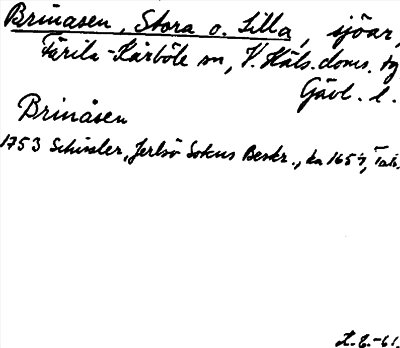 Brinåsen, Stora o. Lilla, sjöar,
Färila-Kårböle sn, V. Häls. doms. tg
Gävl. l.
Brinåsen
1753 Schissler, Jerlsö Sokns Beskr., ka 1654,